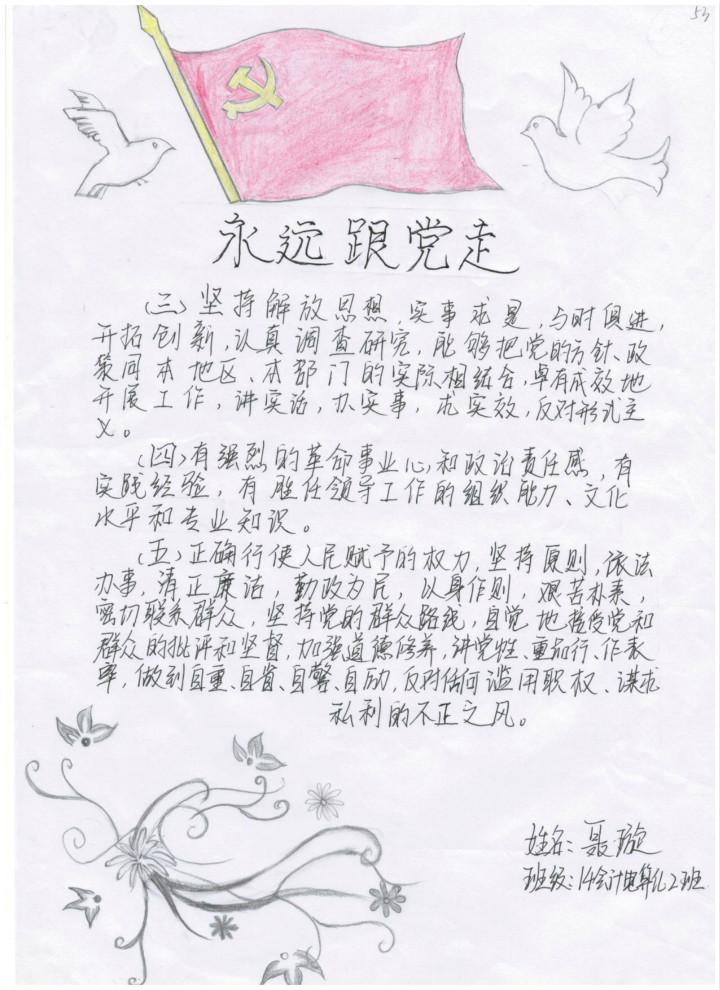 53
永远跟党走
（三）坚持解放思想，实事求是，与时俱进，
开拓创新，认真调查研究，能够把党的方针、政
策同本地区、本部门的实际相结合，卓有成效地
开展工作，讲实话，办实事，求实效，反对形式主
义。
（四）有强烈的革命事业心和政治责任感，有
实践经验，有胜任领导工作的组织能力、文化
水平和专业知识。
（五）正确行使人民赋予的权力，坚持原则，依法
办事，清正廉洁，勤政为民，以身作则，艰苦朴素，
密切联系群众，坚持党的群众路线，自觉地接受党和
群众的批评和坚督，加强道德修养，讲党性、重品行、作表
率，做到自重、自省、自警、自励，反对任何滥用职权、谋求
私利的不正之风。
姓名：聂璇
班级：14会计电算化2班